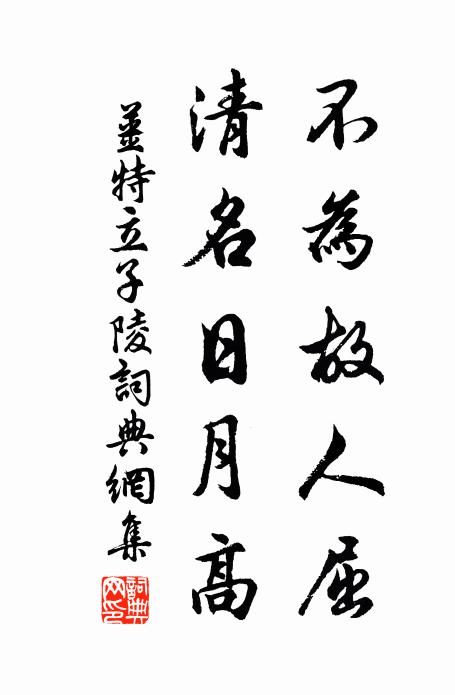 不為故人屈
清名日月高
姜特立子陵詞典網集
詞典网印